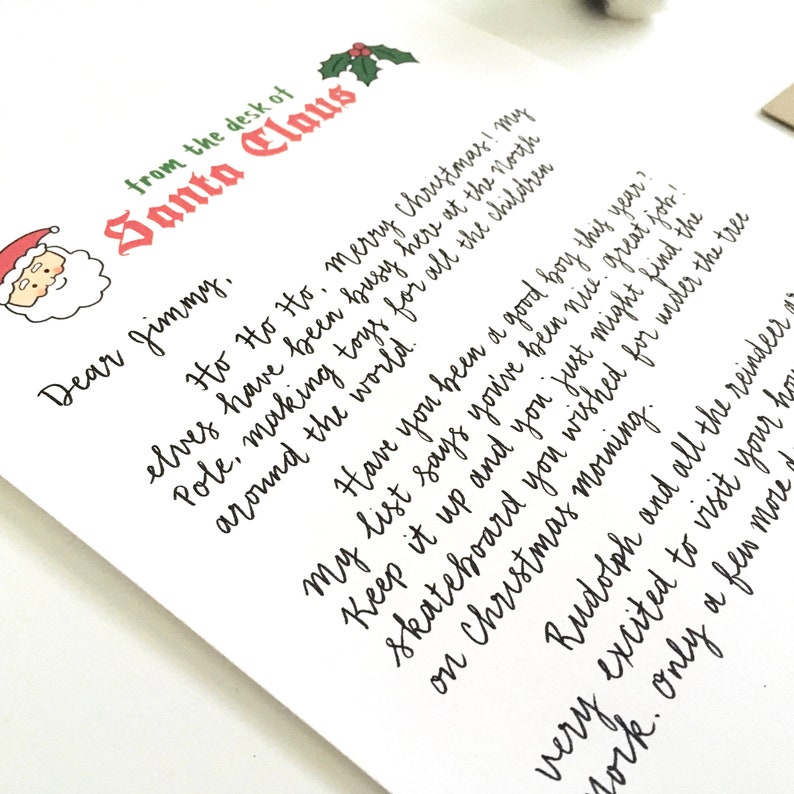 from the desk of
Santa Claus
Dear Jimmy,
Ho Ho Ho, Merry Christmas! My
elves have been busy here at the North
Pole, making toys for all the children
around the world.
Have you been a good boy this year?
My list says you've been nice. great job!
Keep it up and you just might find the
skateboard you wished for under the tree
on Christmas morning.
Rudolph and all the reindeer
very excited to visit your
Only a few more